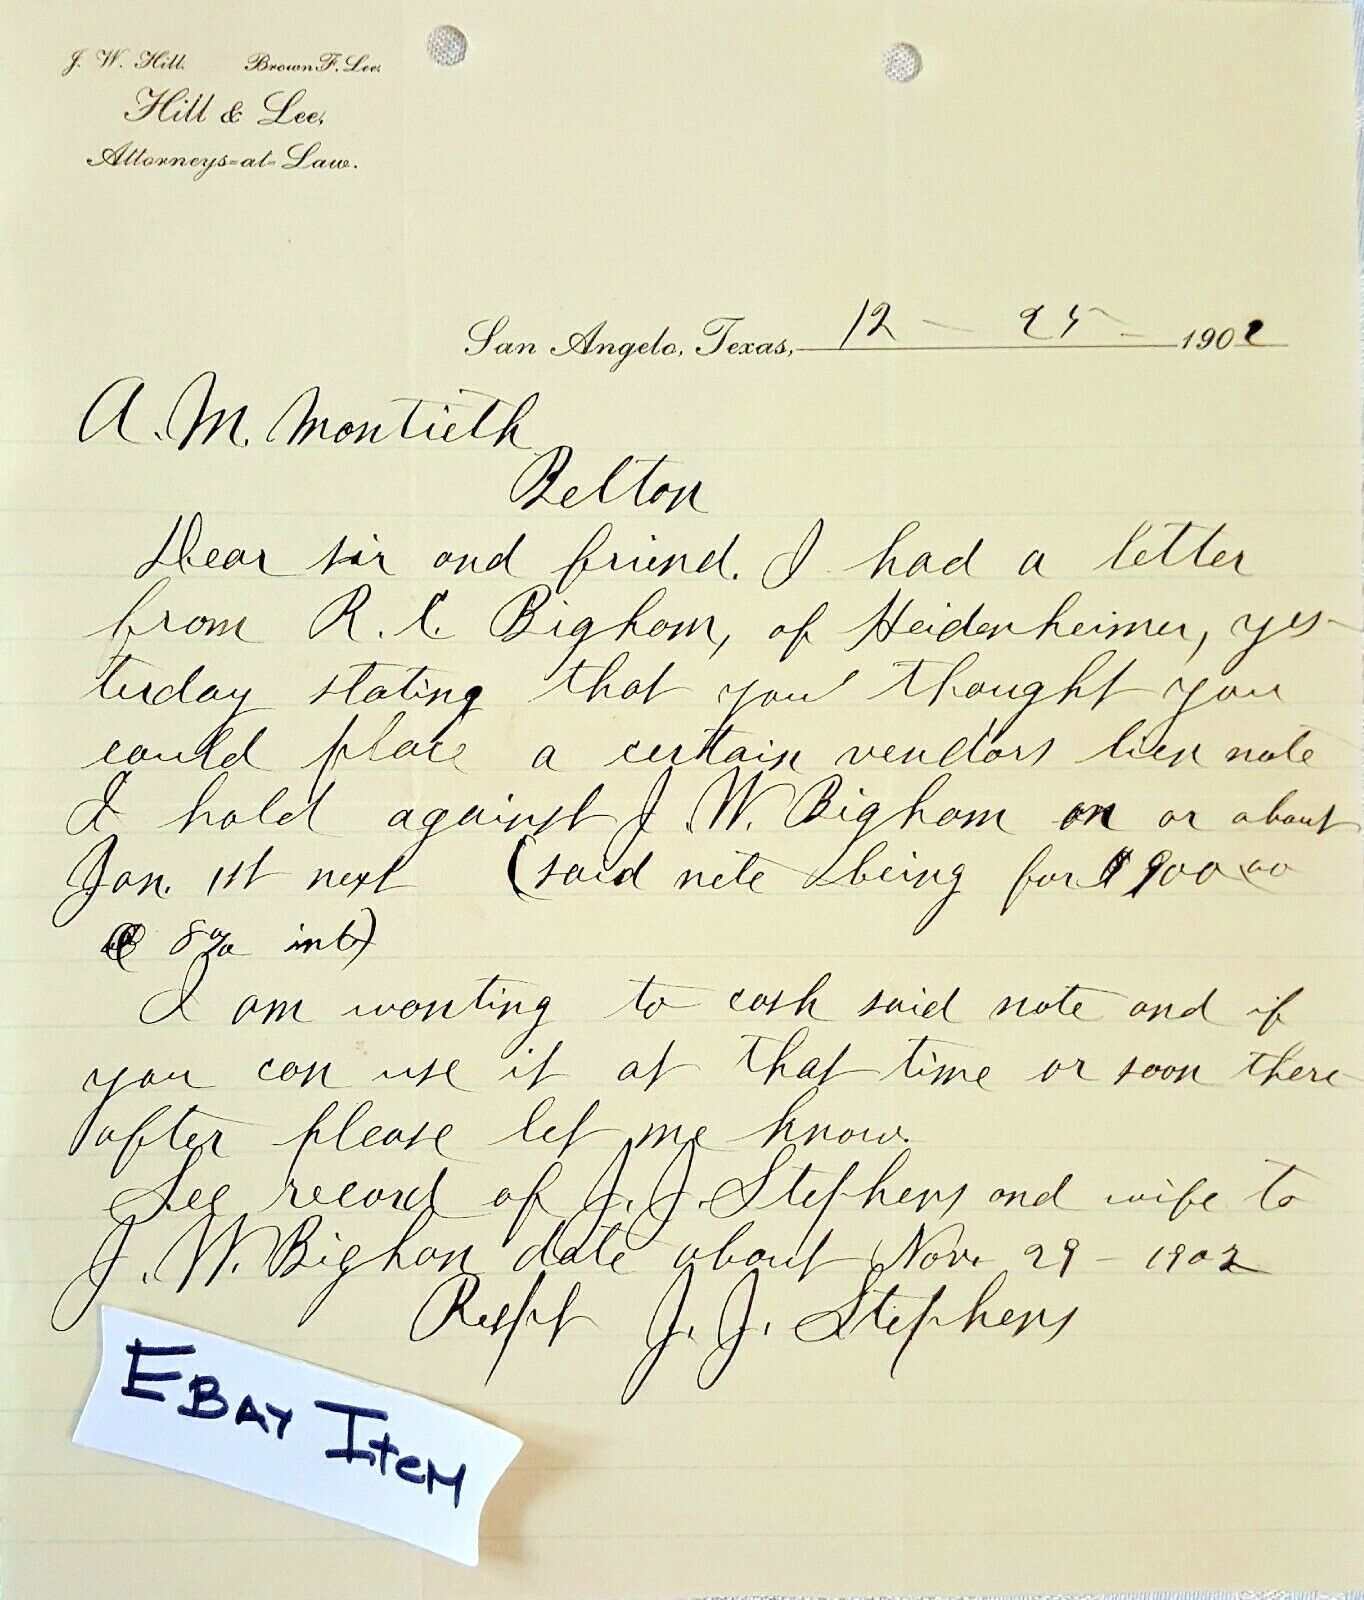 J. W. Hill. Brown F. Lee.
Hill & Lee,
Attorneys-at-Law.
San Angelo, Texas, 12 - 25 - 1902
A. M. Montieth
Belton
Dear sir and friend. I had a letter
from R. C. Bigham, of Heidenheimer, yes-
terday stating that you thought you
could place a certain vendors lien note
I hold against J. W. Bigham on or about
Jan. 1st next (said note being for $900.00
@ 8% int)
I am wanting to cash said note and if
you can use it at that time or soon there
after please let me know.
See record of J. J. Stephens and wife to
J. W. Bigham date about Nov. 29 - 1902
Respt J. J. Stephens
EBAY ITEM